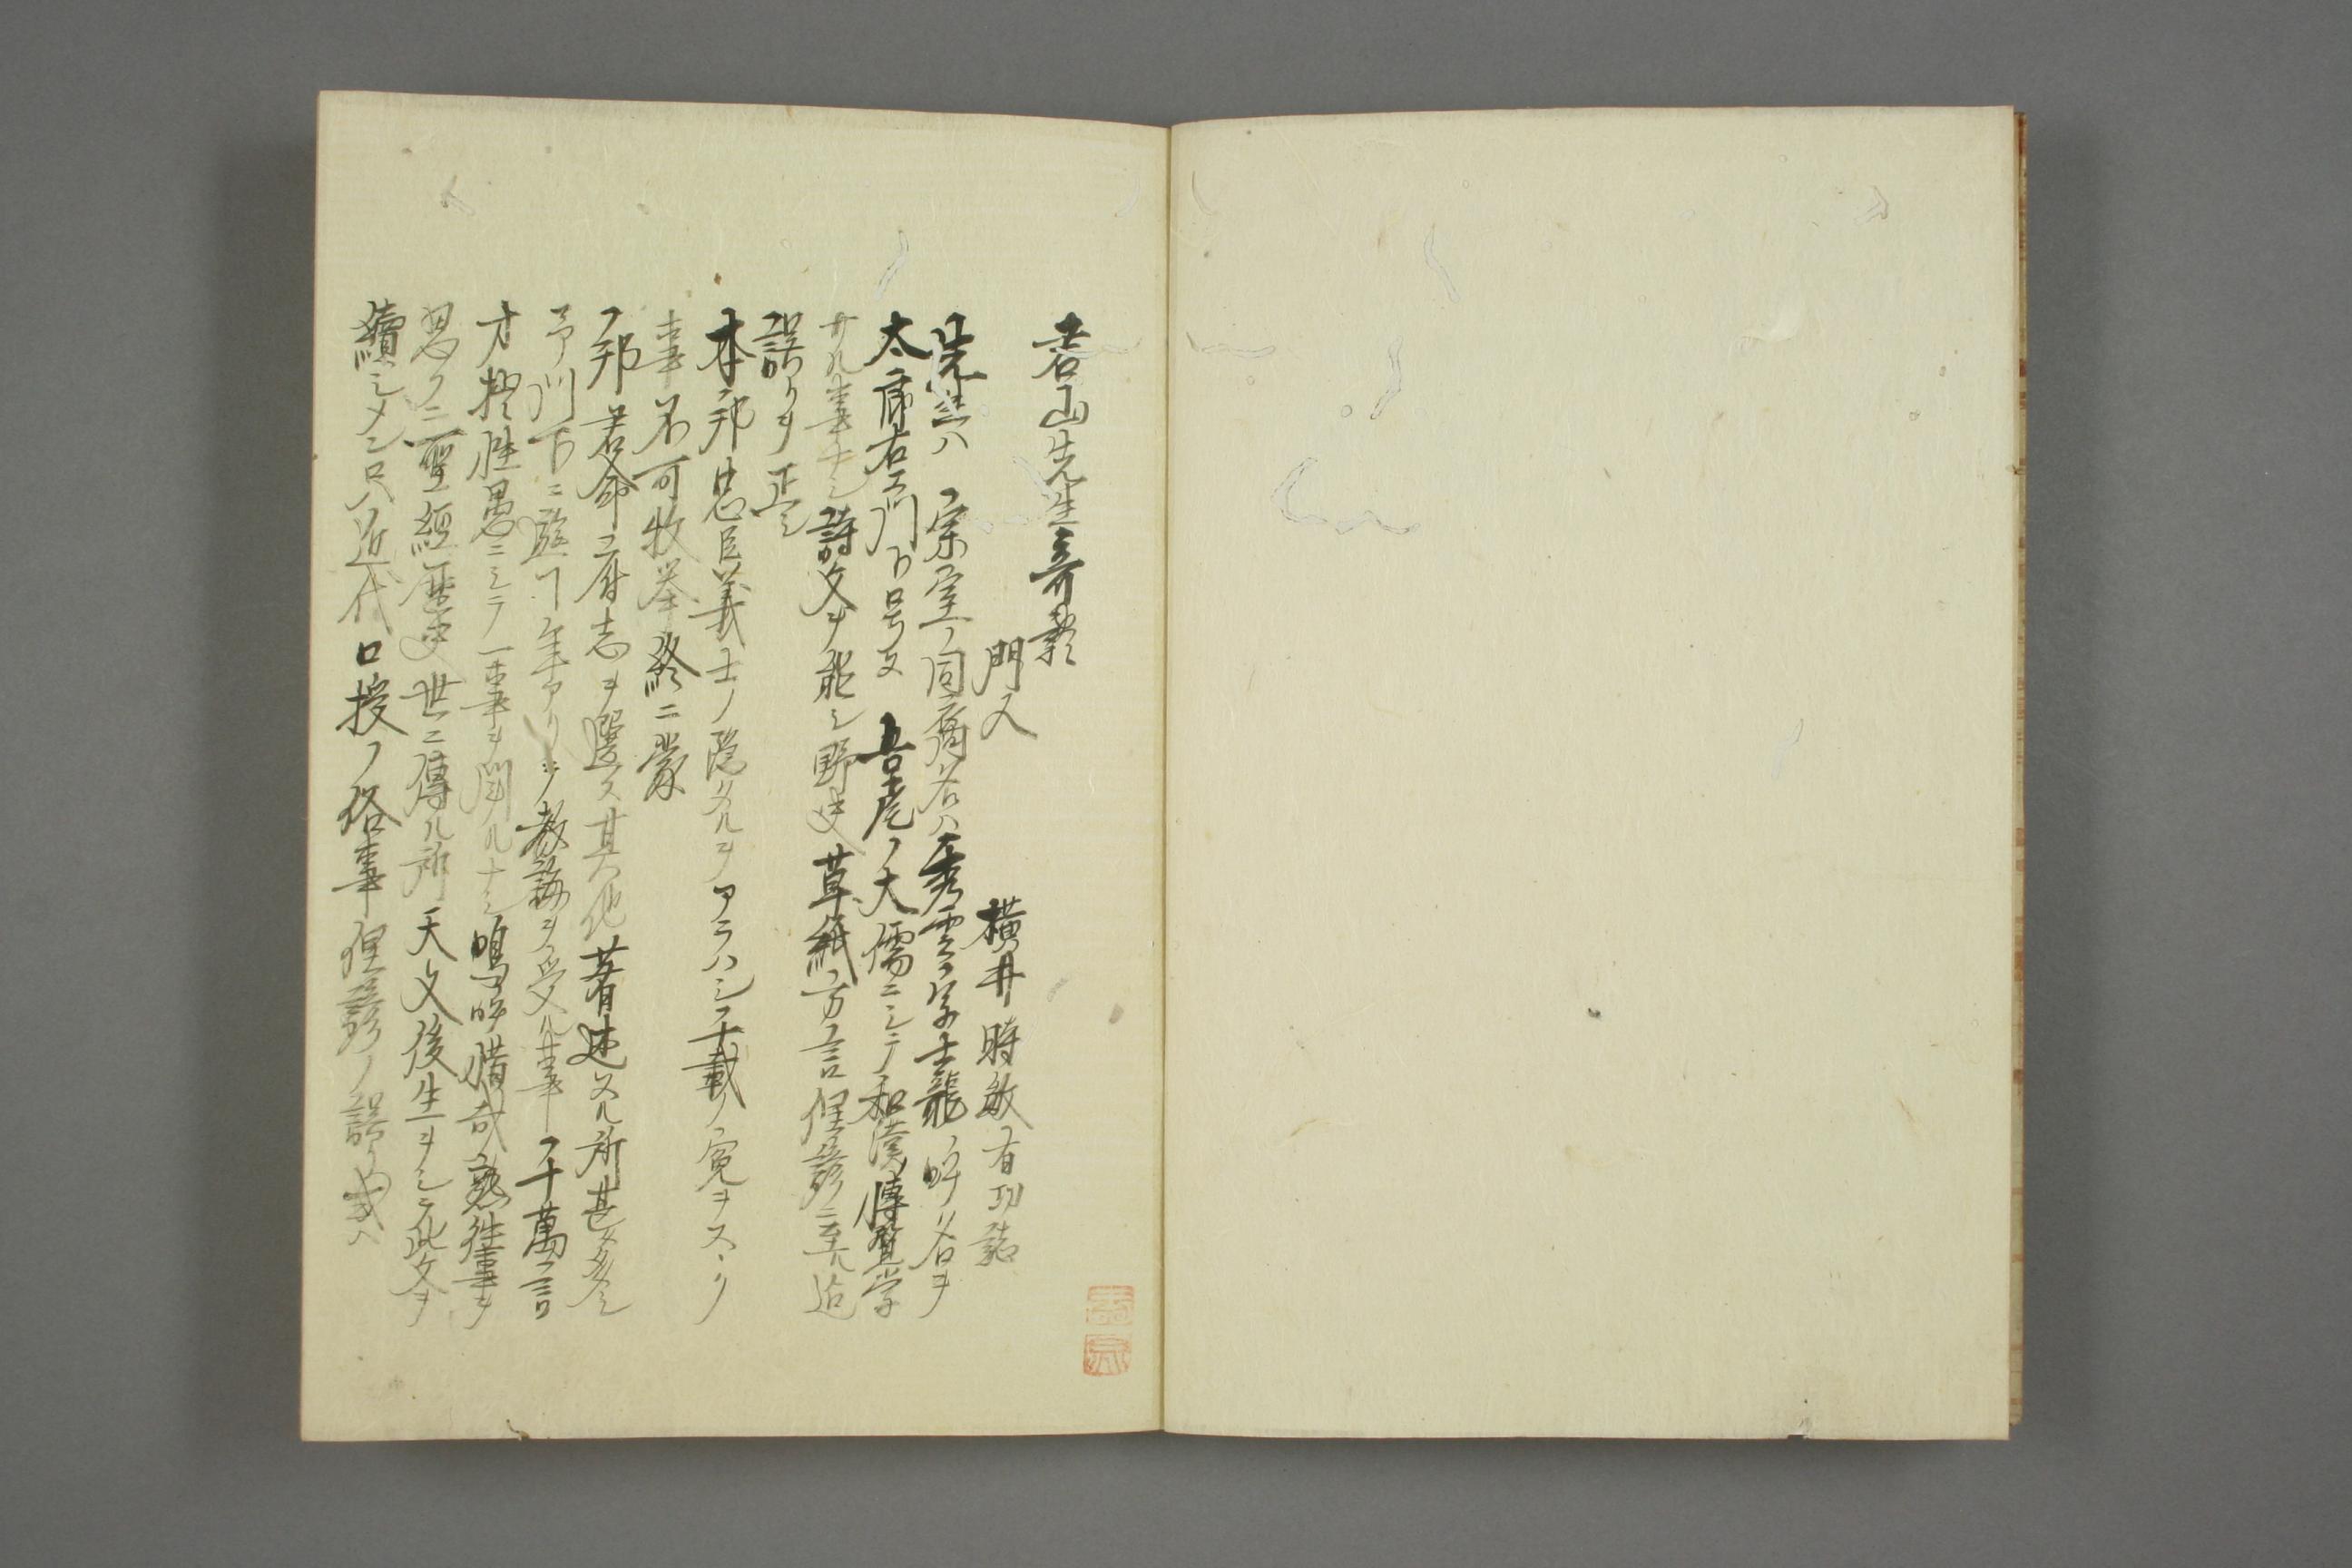 君山先生奇影
門人 横井時敏有功誌
先生ハ宗室ノ同裔名ハ秀雲字士龍呼名ヲ
太郎右エ門ト号ス吾尾ノ大儒ニシテ和漢博覧学
サル事ナシ詩文ヲ能シ野史草紙方言俚諺ニ至ル迄
誤リヲ正シ
本邦忠臣義士ノ隠タルヲアラハシ千載ノ寃ヲスヽリ
事不可枚挙終ニ蒙
邦君命ニ府志ヲ選ス其他著述スル所甚タ多シ
予門下ニ遊ヿ年アリシテ教誨ヲ受ル事千萬言
才拙性愚ニシテ一事ヲ開ルナシ嗚呼惜哉愁往事ヲ
思フニ聖經歴史世ニ傳ル所天文後生ヲシテ此文ヲ
續シメン只近代口授ノ俗事俚諺ノ誤リ或ハ